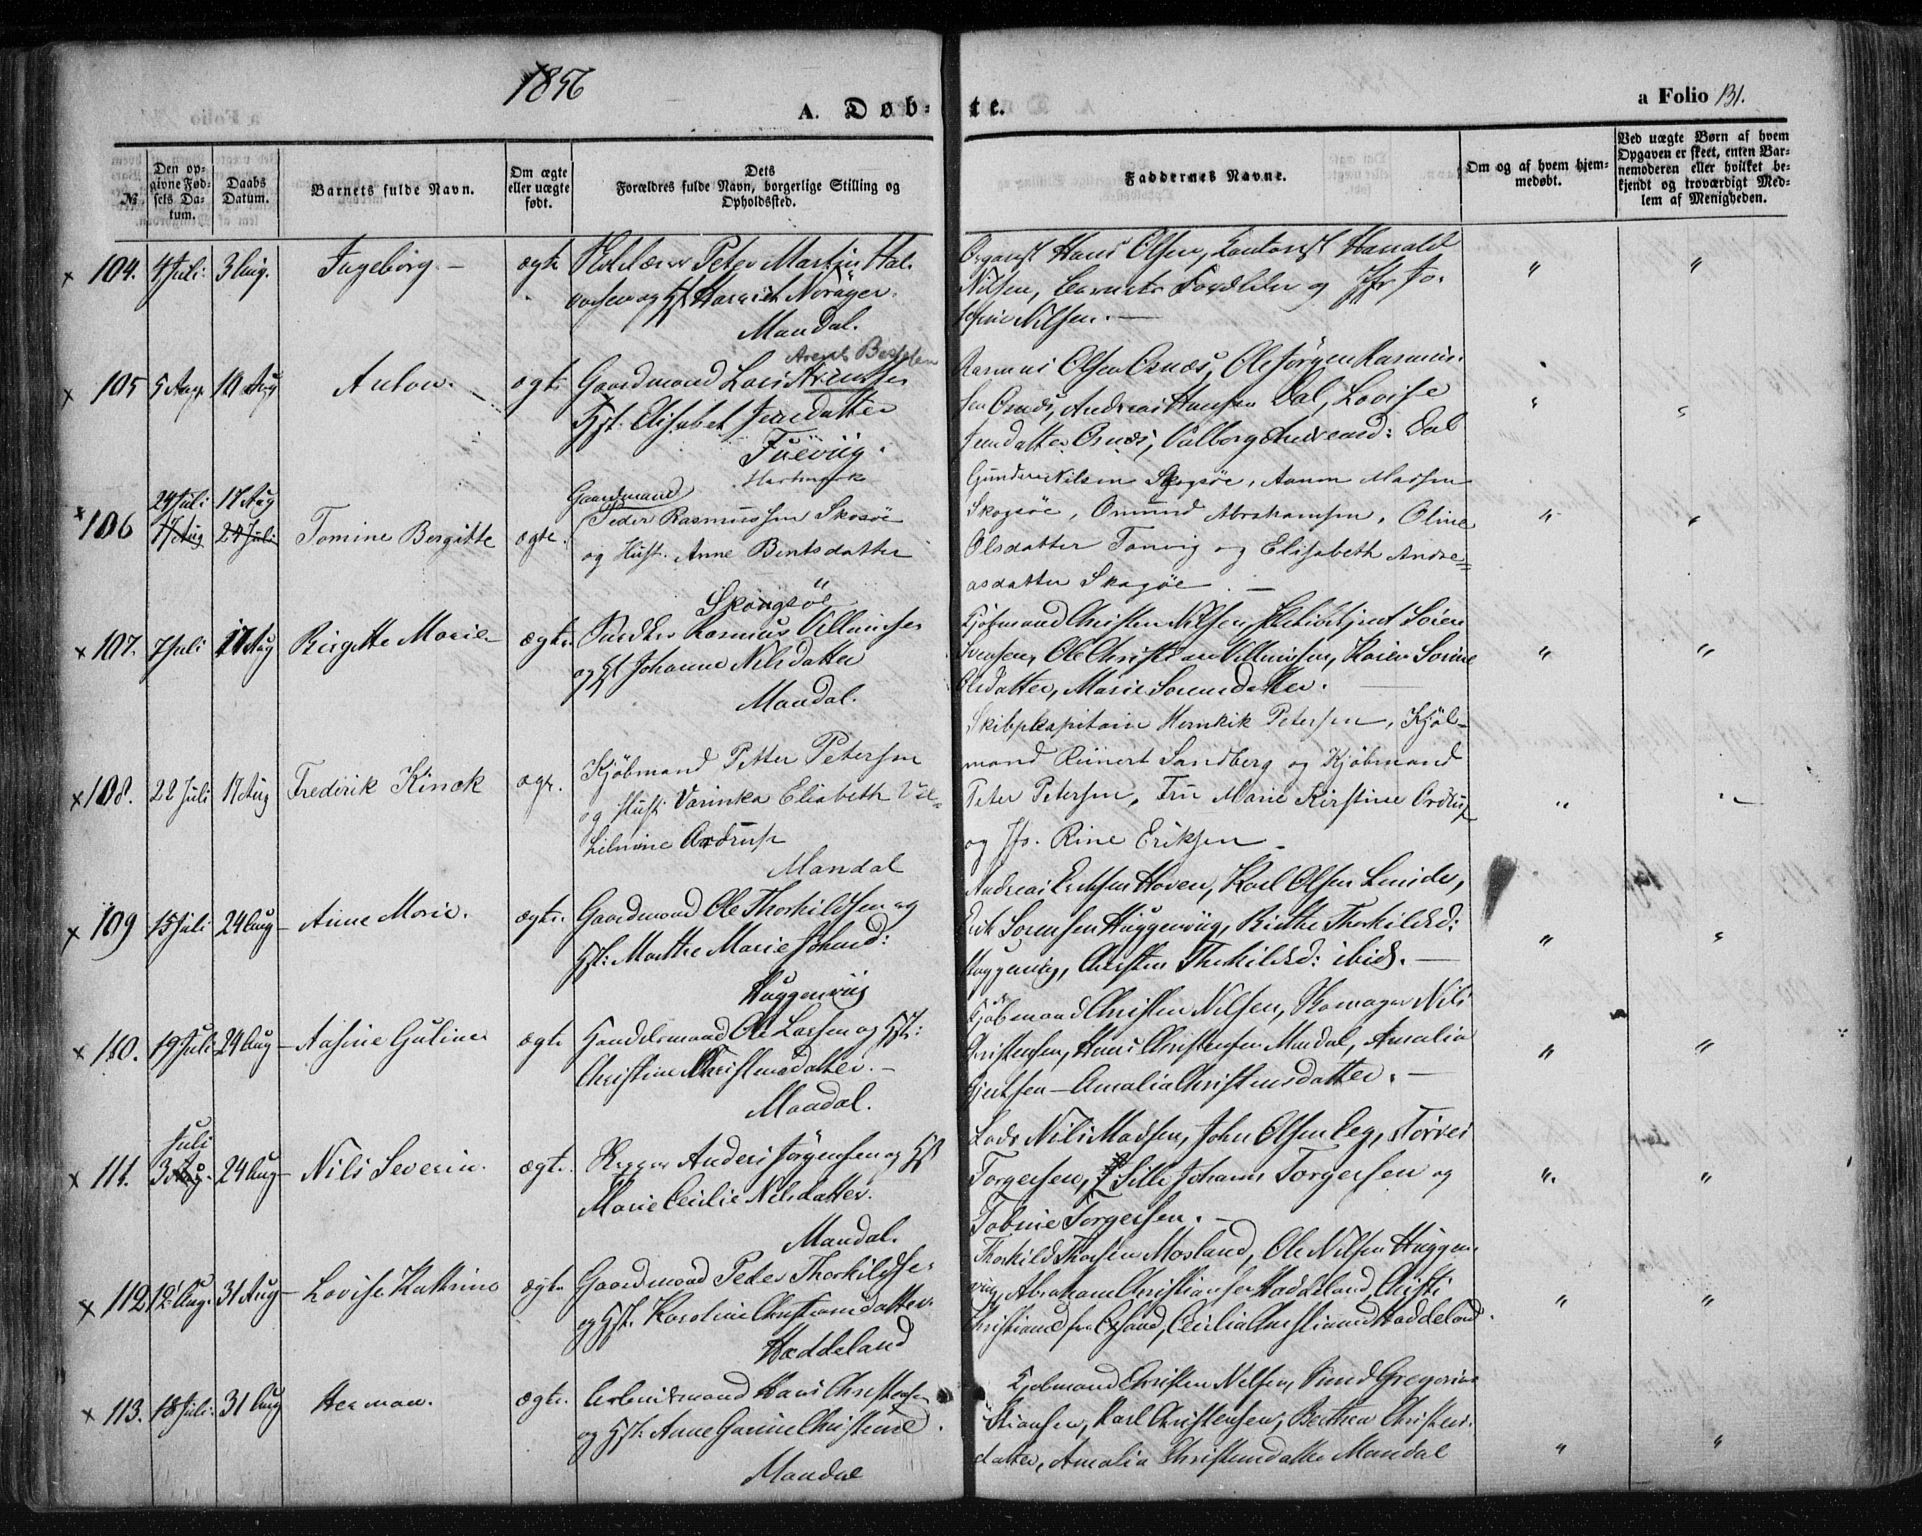 1856
A. Døb-te.
a Folio 131.
№
Den opgivne Fødsels Datum.
Daabs Datum.
Barnets fulde Navn.
Om ægte eller uægte født.
Dets Forældres fulde Navn, borgerlige Stilling og Opholdssted.
Faddernes Navne.
Om og af hvem hjemmedøbt.
Ved uægte Børn af hvem Opgaven er skeet, enten Barnemoderen eller hvilket bekjendt og troværdigt Medlem af Menigheden.
104. 4 Juli. 3 Aug. Ingeborg. ægte Peter Martin Hal-
vorsen og Hst Harriet Noräger.
Mandal.
Organist Hans Olsen, Harald
Nilsen, Barnets Forældre og Jfr Jo-
sefine Nilsen.
105 5 Aug. 10 Aug Anton. ægte Gaardmand Lars Arentsen
Arent Bertelsen
Hst. Elisabet Jensdatter
Hartmark
Rasmus Olsen Osnes, Ole Jørgen Rasmus-
sen Osnes, Andreas Hansen Dal, Lovise
Jensdatter Osnes, Valborg Andreasd: Dal
106 24 Juli 17 Aug Tomine Bergitte ægte. Gaardmand
17 Aug 24 Juli
Peder Rasmussen Skosøe
og Hust. Anne Bentsdatter
Skougsöe
Gunder Nilsen Skogsøe, Aanen Madsen
Skogsøe, Omund Abrahamsen, Oline
Olsdatter Tonvig og Elisabeth Andre-
asdatter Skogøe
107. 7 Juli 17 Aug Birgitte Marie ægte Snedker Rasmus Villumsen
og Hst Johanne Nilsdatter
Mandal.
Kjøbmand Christen Nilsen, Søren
Svensen, Ole Christian Villumsen, Karen Sorine
Olsdatter, Marie Sorensdatter.
108. 22 Juli 17 Aug Frederik Kinck ægte. Kjøbmand Petter Petersen
og Hust: Varinka Elisabeth Vil-
helmine Ordrup
Mandal
Skibskapitain Henrik Petersen, Kjøb-
mand Reinert Sandberg og Kjøbmand
Peter Petersen, Fru Marie Kirstine Ordrup
og Jfr. Rine Eriksen
109 15 Juli 24 Aug Anne Marie. ægte. Gaardmand Ole Thorkildsen og
Hst: Marthe Marie Johnsd:
Huggenviig
Andreas Eriksen Hoven, Karl Olsen Lunde,
Erik Sorensen Huggenviig, Birthe Thorkildsd:
Huggenvig, Christen Thorkildsd: ibid.
110. 19 Juli 24 Aug Aasine Guline ægte Handelsmand Ole Larsen og Hst:
Christine Christensdatter.
Mandal.
Kjøbmand Christen Nilsen, Skomager Nils
Christensen, Hans Christensen Mandal, Amalia
Gjertsen - Amalia Christensdatter.
111. 3 Juli 24 Aug Nils Severin. ægte. Anders Jørgensen og Hst
Marie Cecilie Nilsdatter.
Mandal.
Lods Nils Madsen, John Olsen Eeg, Torres
Torgersen, Sille Johanne Torgersen og
Tobine Torgersen.
112 12 Aug. 31 Aug Lovise Kathrine ægte Gaardmand Peder Thorkildsen
og Hst. Karoline Christiansdatter.
Haddeland
Thorkild Thorsen Mosland, Ole Nilsen Huggen-
vig, Abraham Christiansen Haddeland, Christi
Christiansd fra Chsand, Cecilia Christiansd Haddeland.
113. 18 Juli. 31 Aug Herman. ægte. Arbeidsmand Hans Christensen
og Hst: Anne Gurine Christensd.
Mandal
Kjøbmand Christen Nilsen, Gregorius
Stiansen, Karl Christensen, Berthea Christens-
datter, Amalia Christensdatter Mandal